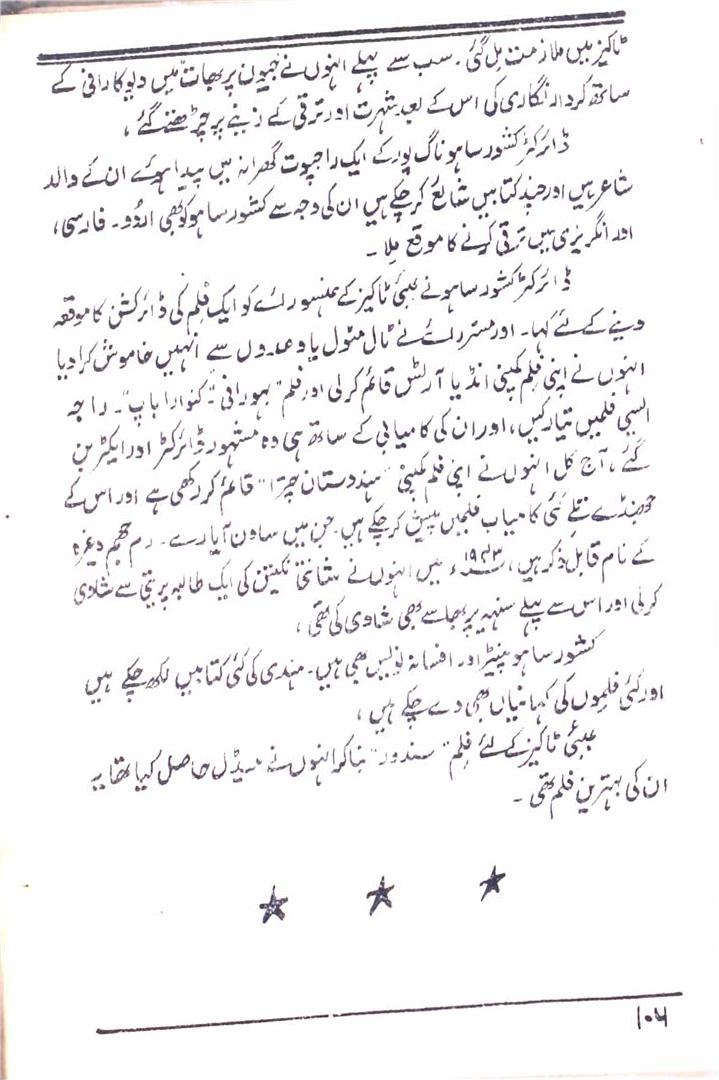 ٹاکیز میں ملازمت مل گئی ۔ سب سے پہلے انہوں نے جیون پربھات میں دیوکا رانی کے
ساتھ کردار نگاری کی اس کے بعد شہرت اور ترقی کے زینے پر چڑھتے گئے ،
ڈائرکٹر کشور ساہو ناگ پور کے ایک راجپوت گھرانہ میں پیدا ہوئے ان کے والد
شاعر ہیں اور چند کتابیں شائع کر چکے ہیں ان کی وجہ سے کشور ساہو کو بھی اردو ۔ فارسی ،
اور انگریزی میں ترقی کرنے کا موقع ملا ۔
ڈائرکٹر کشور ساہو نے بمبئی ٹاکیز کے ہنسو رائے کو ایک فلم کی ڈائرکشن کا موقعہ
دینے کے لئے کہا ۔ اور مسٹر رائے نے ٹال مٹول یا وعدوں سے انہیں خاموش کرا دیا
انہوں نے اپنی فلم کمپنی انڈیا آرٹس قائم کر لی اور فلم " بہورانی " ۔ کنوارا باپ " ۔ راجہ
ایسی فلمیں تیار کیں ، اور ان کی کامیابی کے ساتھ ہی وہ مشہور ڈائرکٹر اور ایکٹر بن
گئے ، آج کل انہوں نے اپنی فلم کمپنی " ہندوستان چترا " قائم کر رکھی ہے اور اس کے
جھنڈے تلے کئی کامیاب فلمیں پیش کر چکے ہیں ۔ جن میں ساون آیا رے ۔ رم جھم وغیرہ
کے نام قابل ذکر ہیں ، ۱۹۴۳ء میں انہوں نے شانتی نکیتن کی ایک طالبہ پریتی سے شادی
کر لی اور اس سے پہلے سنہہ پربھا سے بھی شادی کی تھی ،
کشور ساہو پینٹر اور افسانہ نویس بھی ہیں ۔ ہندی کی کئی کتابیں لکھ چکے ہیں
اور کئی فلموں کی کہانیاں بھی دے چکے ہیں ،
بمبئی ٹاکیز کے لئے فلم " سندور " بنا کر انہوں نے میڈل حاصل کیا تھا یہ
ان کی بہترین فلم تھی ۔
۱۰۵